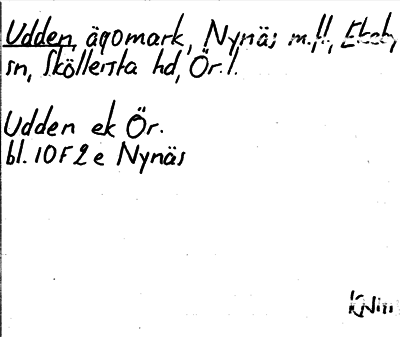 Udden, ägomark, Nynäs m.fl., Ekeb,
sn, Sköllersta hd, Ör. l.
Udden ek Ör.
bl. 10F2e Nynäs